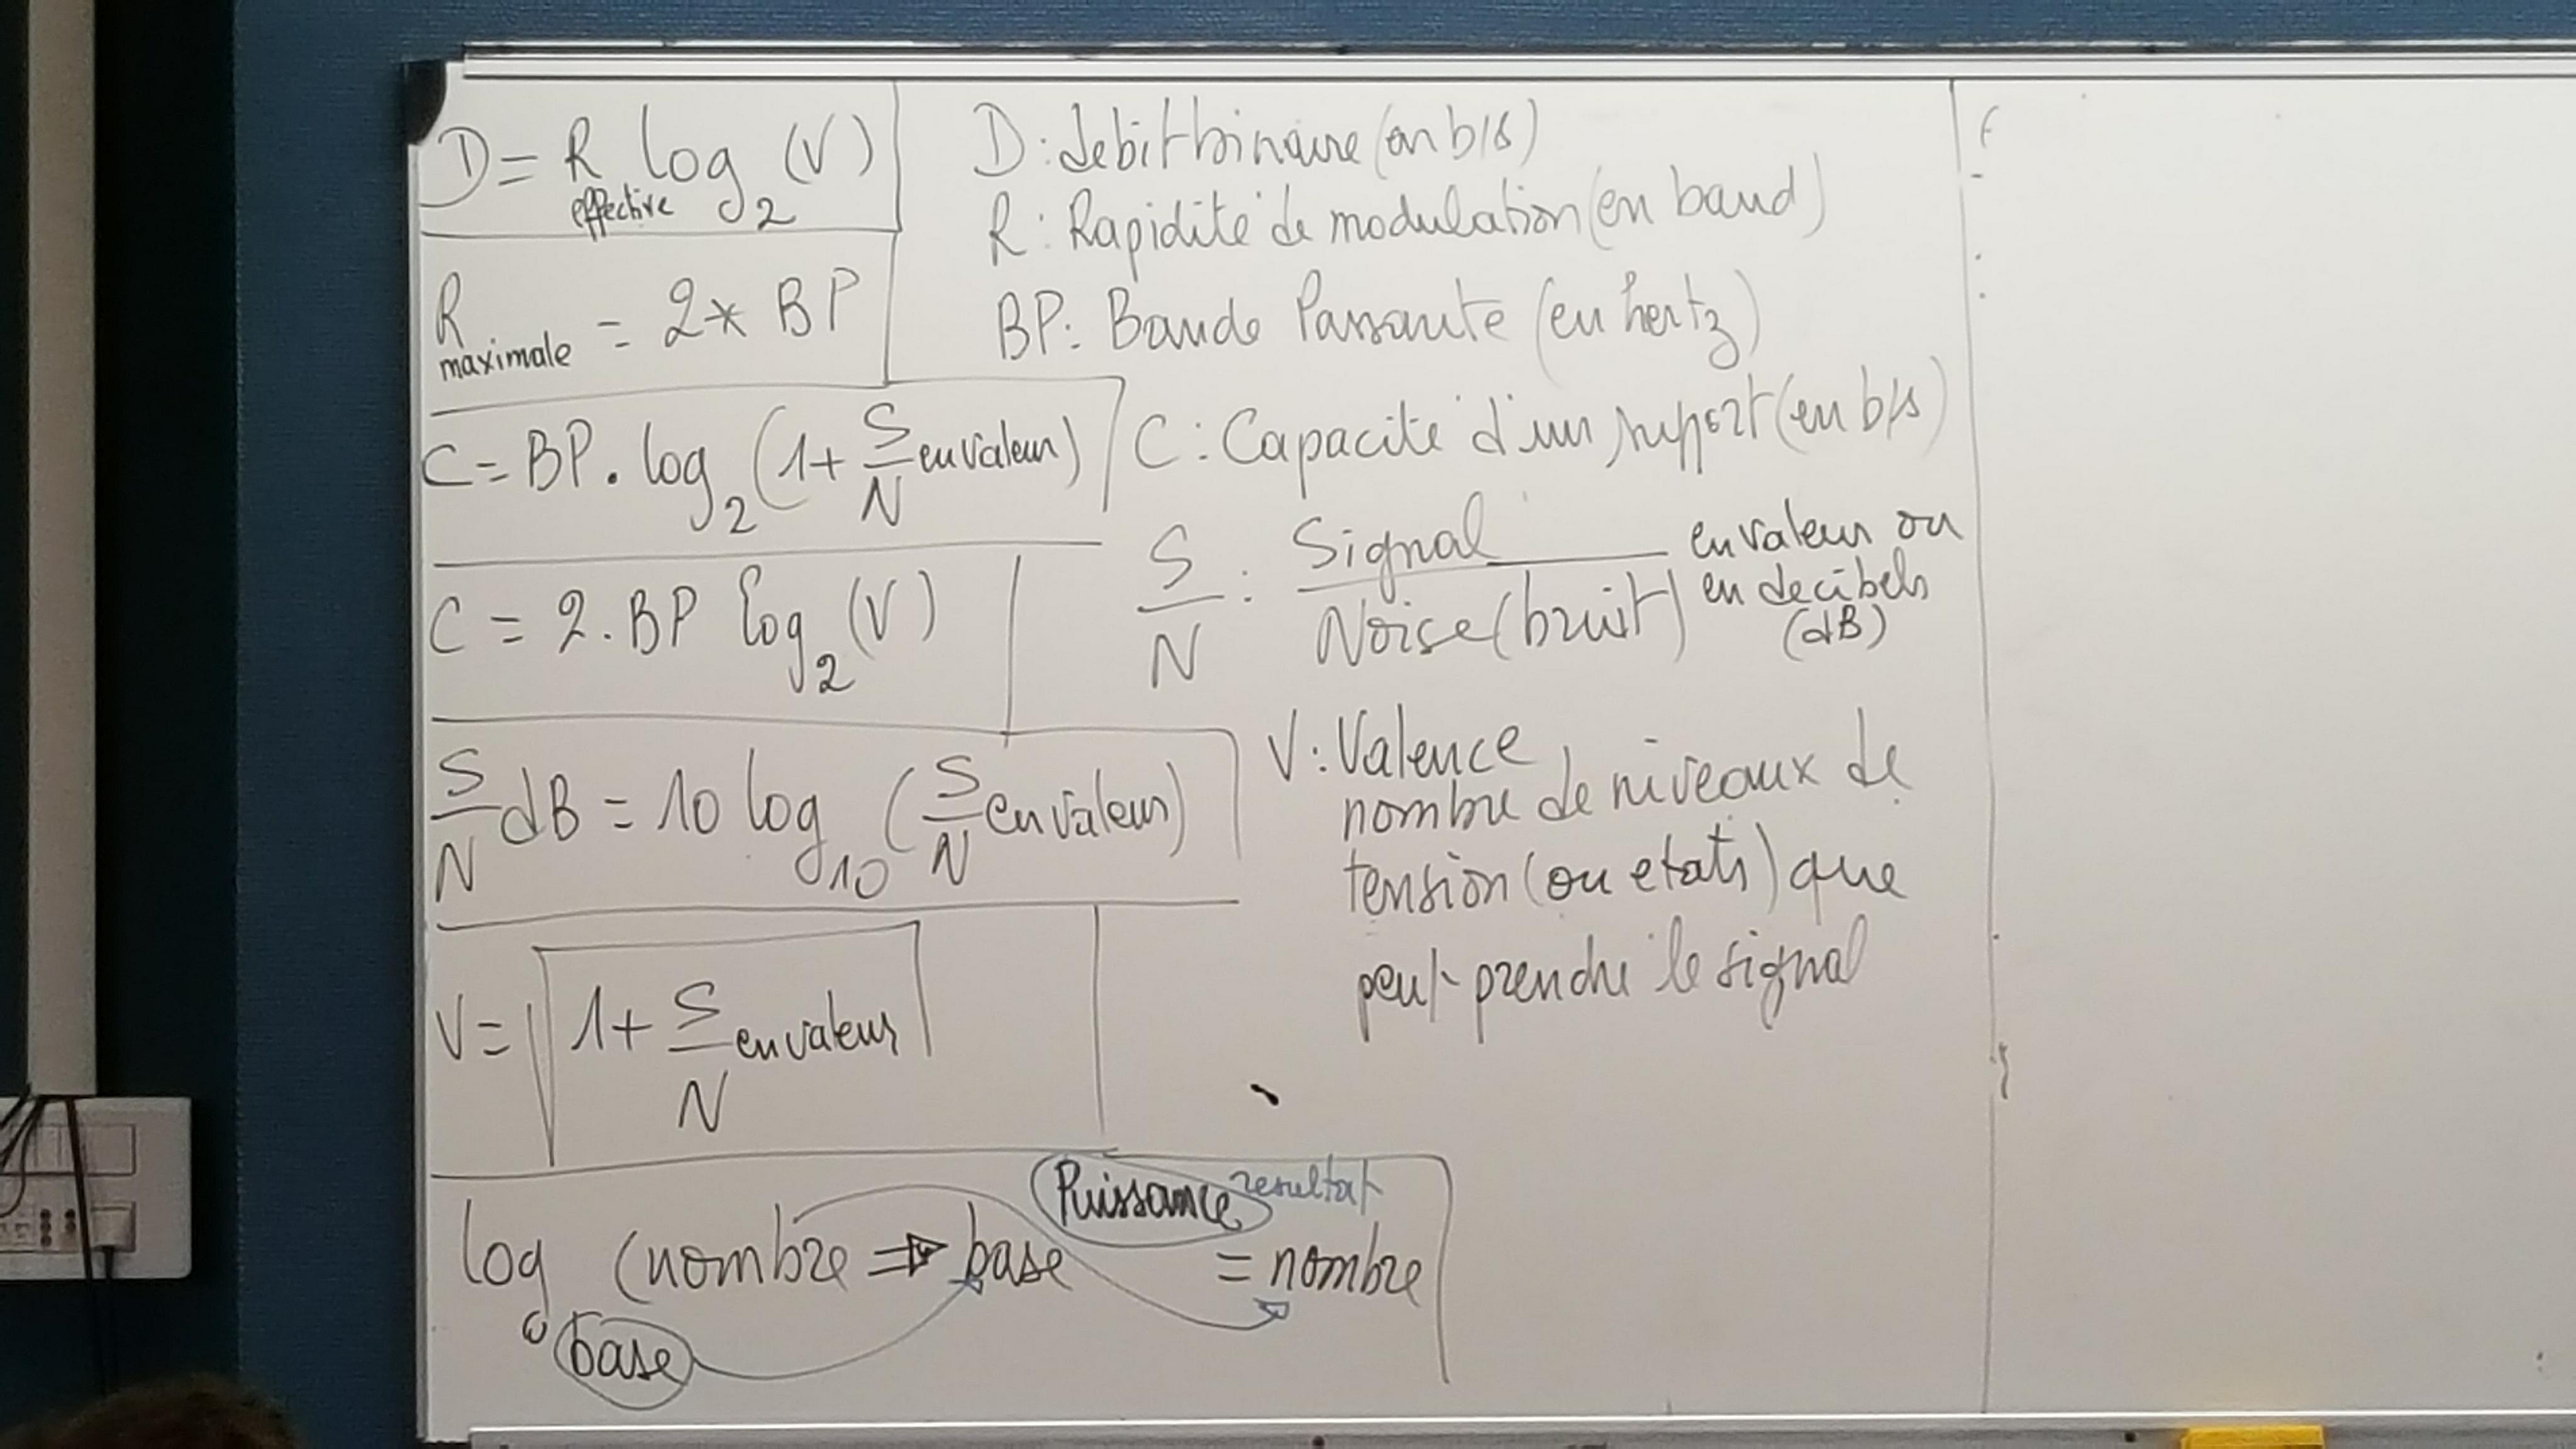 D = R effective log₂ (V)
R maximale = 2 * BP
C = BP . log₂ (1 + S/N en valeur)
C = 2 . BP log₂ (V)
S/N dB = 10 log₁₀ (S/N en valeur)
V = √(1 + S/N en valeur)
log base (nombre ⇒ base Puissance resultat = nombre
D : debit binaire (en b/s)
R : Rapidité de modulation (en baud)
BP : Bande Passante (en hertz)
C : Capacité d'un support (en b/s)
S/N : Signal / Noise (bruit) en valeur ou
en decibels
(dB)
V : Valence
nombre de niveaux de
tension (ou etats) que
peut prendre le signal